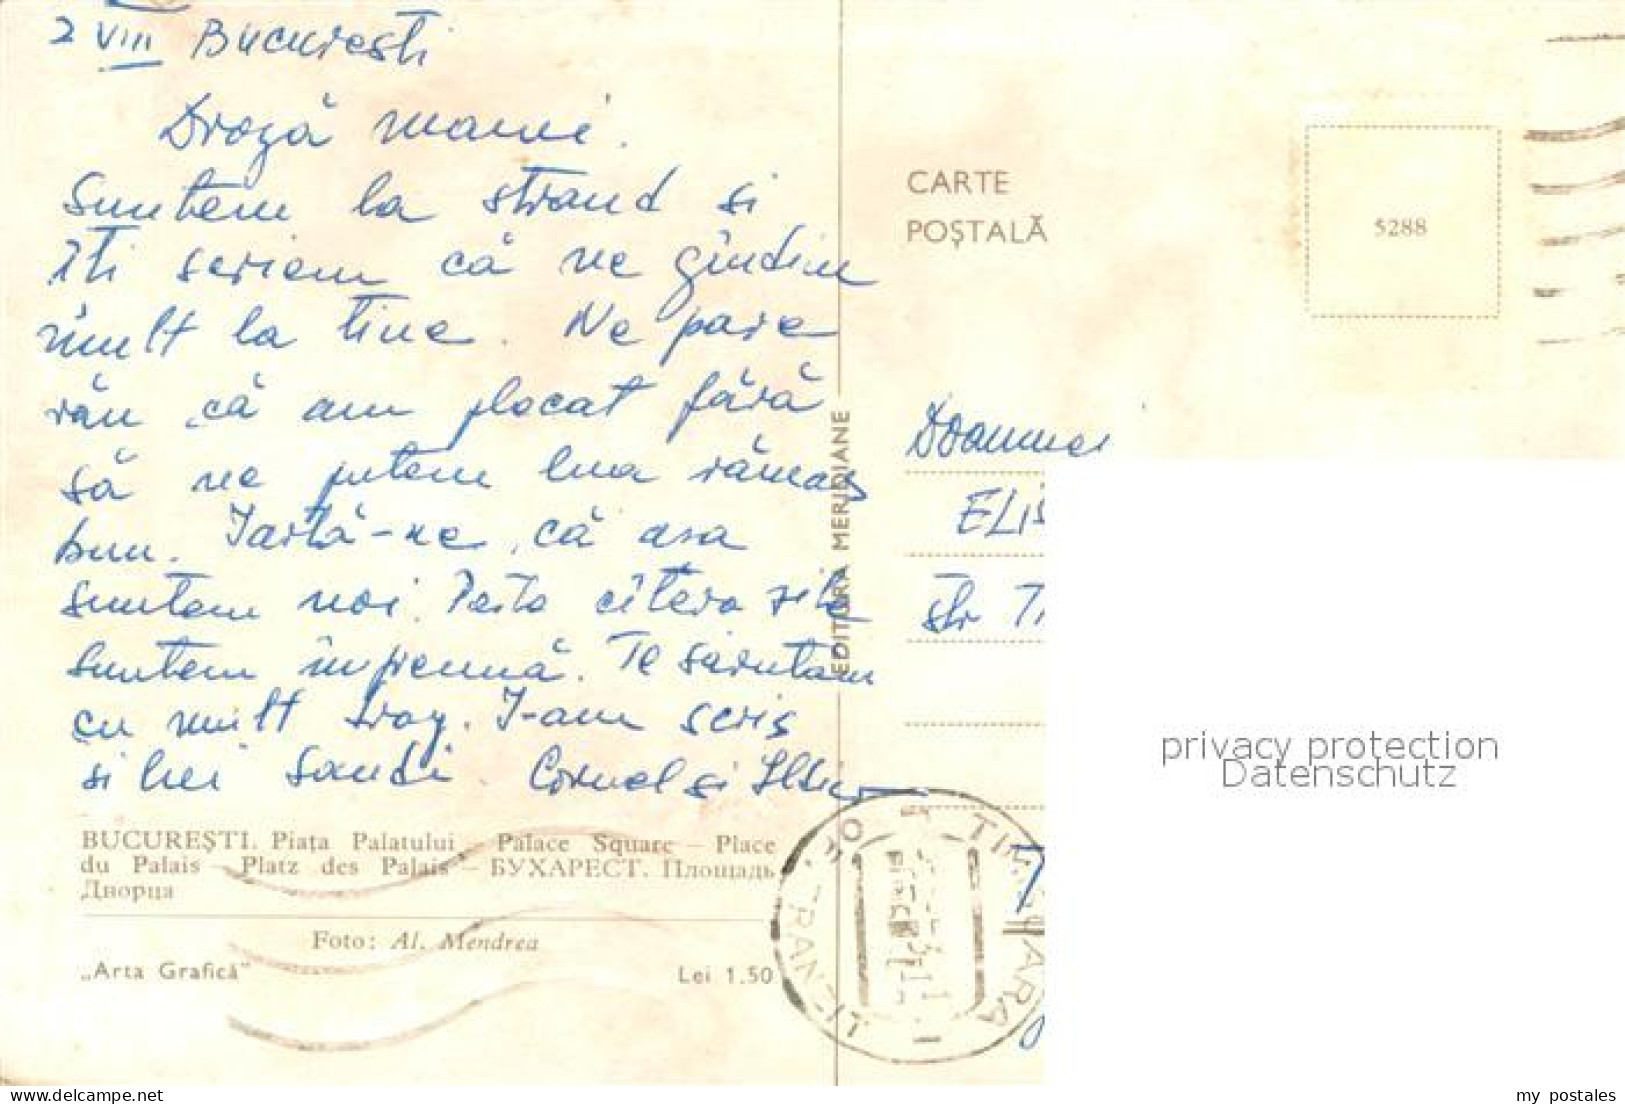 2 VIII București
Dragă mami.
Suntem la strand si
Iti scriem că ne gîndim
mult la tine. Ne pare
rău că am plecat fără
să ne putem lua rămas
bun. Iartă-ne, că asa
suntem noi. Peste cîteva zile
suntem împreună. Te sărutăm
cu mult drag. I-am scris
si lui Sandi. Cornel si
BUCUREȘTI. Piața Palatului – Palace Square – Place
du Palais – Platz des Palais – БУХАРЕСТ. Площадь
Дворца
Foto: Al. Mendrea
„Arta Grafică"
Lei 1.50
EDITURA MERIDIANE
CARTE
POȘTALĂ
5288
Doamnei
ELIS
Str
TIMIȘOARA
TRANZIT
privacy protection
Datenschutz
delcampe.net
my_postales